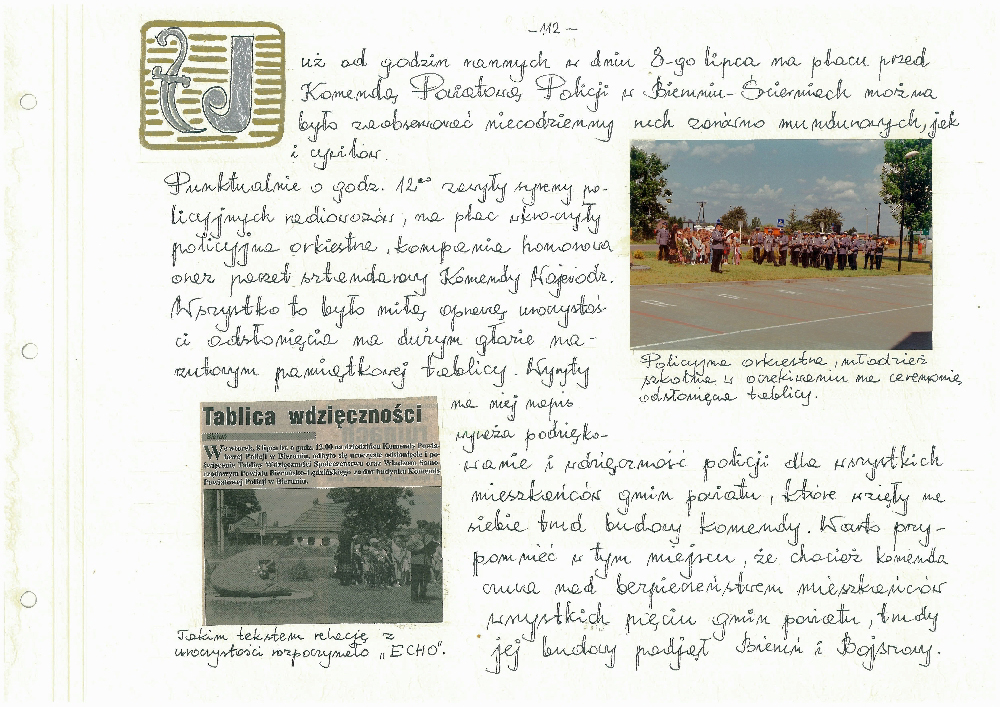 - 112 -
Już od godzin rannych w dniu 8-go lipca na placu przed
Komendą Powiatową Policji w Bieruniu - Ścierniach można
było zaobserwować niecodzienny ruch zarówno mundurowych, jak
i cywilów.
Punktualnie o godz. 12⁰⁰ zawyły syreny po-
licyjnych radiowozów, na plac wkroczyły
policyjna orkiestra, kompania honorowa
oraz poczet sztandarowy Komendy Wojewódz.
Wszystko to było miłą oprawą uroczystoś-
ci odsłonięcia na dużym głazie na-
rzutowym pamiątkowej tablicy. Wyryty
na niej napis
wyraża podzięko-
wanie i wdzięczność policji dla wszystkich
mieszkańców gmin powiatu, które wzięły na
siebie trud budowy komendy. Warto przy-
pomnieć w tym miejscu, że chociaż komenda
czuwa nad bezpieczeństwem mieszkańców
wszystkich pięciu gmin powiatu, trudy
jej budowy podjął Bieruń i Bojszowy.
Policyjna orkiestra, młodzież
szkolna w oczekiwaniu na ceremonię
odsłonięcia tablicy.
Tablica wdzięczności
We wtorek, 8 lipca br. o godz. 12.00 na dziedzińcu Komendy Powia-
towej Policji w Bieruniu, odbyło się uroczyste odsłonięcie i po-
święcenie Tablicy Wdzięczności Społeczeństwu oraz Władzom Samo-
rządowym Powiatu Bieruńsko-Lędzińskiego za dar budynku Komendy
Powiatowej Policji w Bieruniu.
Takim tekstem relację z
uroczystości rozpoczynało „ECHO".